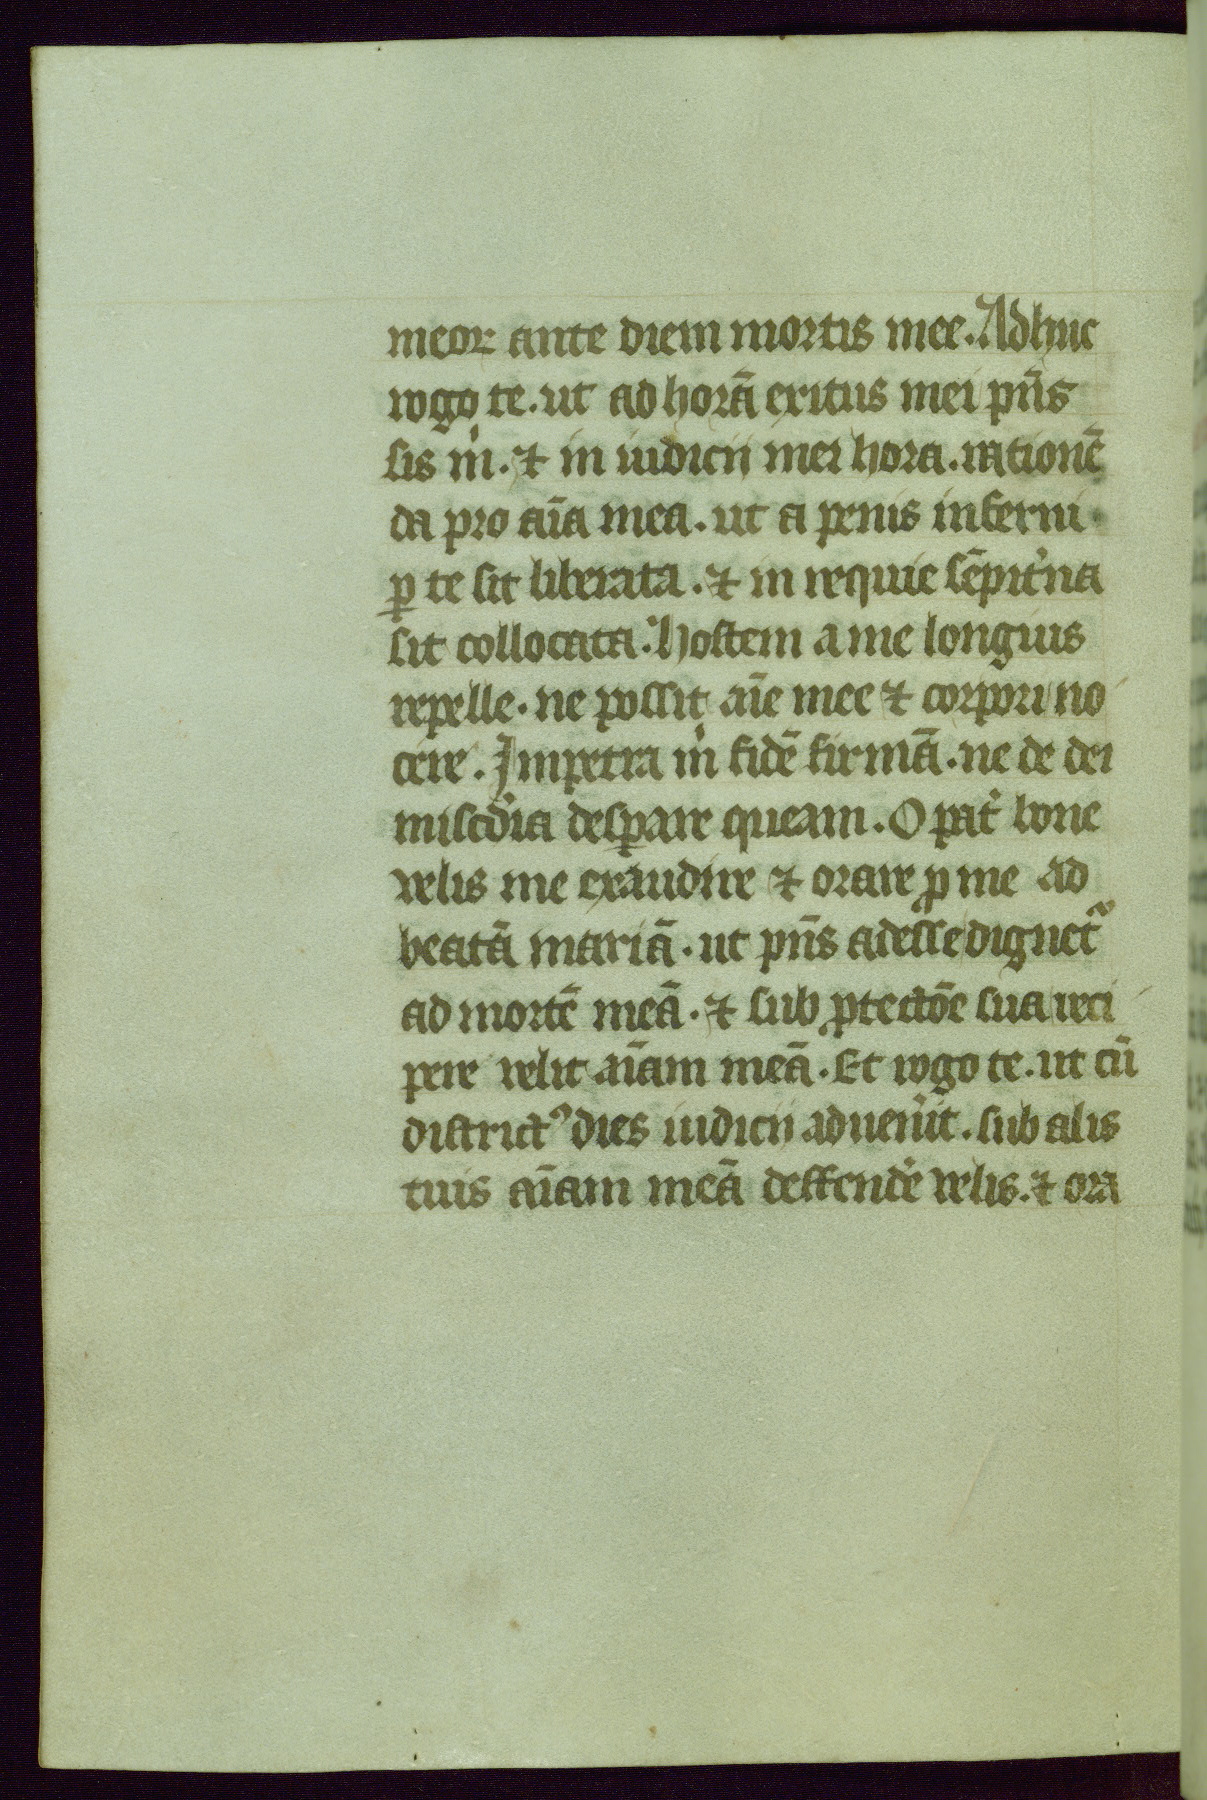 meoꝝ ante diem mortis mee. Adhuc
rogo te. ut ad horā exitus mei pn̄s
sis m̓. ⁊ in iudicii mei hora. rationē
da pro aīa mea. ut a penis inferni
ꝑ te sit liberata. ⁊ in requie sēpit̓na
sit collocata. hostem a me longius
repelle. ne possit aīe mee ⁊ corpori no
cere. Impetra m̓ fidē firmā. ne de dei
miscd̓ia desꝑare queam. O pat̓ bone
velis me exaudire ⁊ orare ꝓ me ad
beatā mariā. ut pn̄s adesse dignet᷑
ad mortē meā. ⁊ sub ꝓtectōe sua reci
pere velit aīam meā. Et rogo te. ut cū
districtꝰ dies iudicii aduen̓it. sub alis
tuis aīam meā deffend̓e velis. ⁊ ora